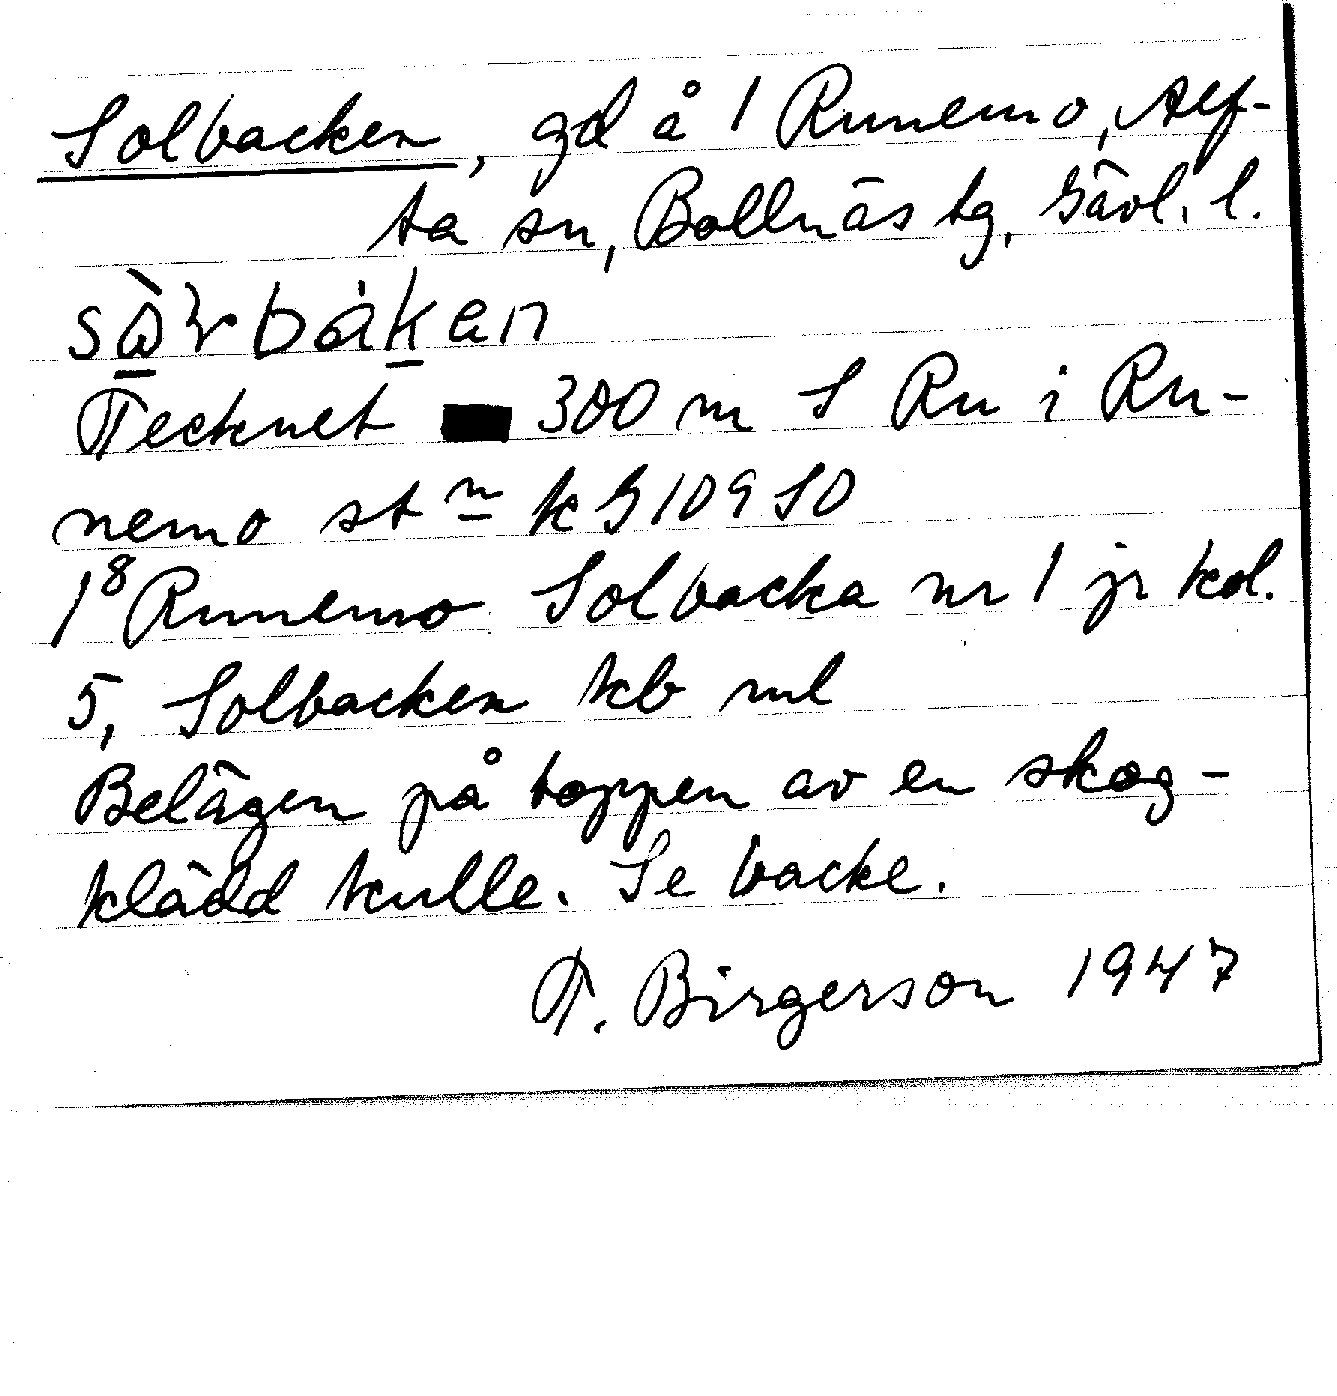 Solbacken, gd å 1 Runemo, Alf-
ta sn, Bollnäs tg, Gävl. l.
Tecknet ■ 300 m S Ru i Ru-
nemo st n kg 109 SO
1⁸ Runemo Solbacka nr 1 jr kol.
5, Solbacken kb ml
Belägen på toppen av en skog-
klädd kulle. Se backe.
T. Birgerson 1947